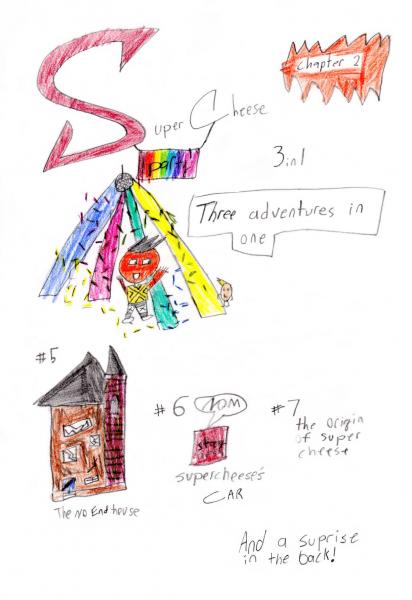 Super Cheese
chapter 2
party
3in1
Three adventures in
one
#5
The No End house
#6
NOM
supercheese's
CAR
#7
the origin
of super
cheese
And a suprise
in the back!